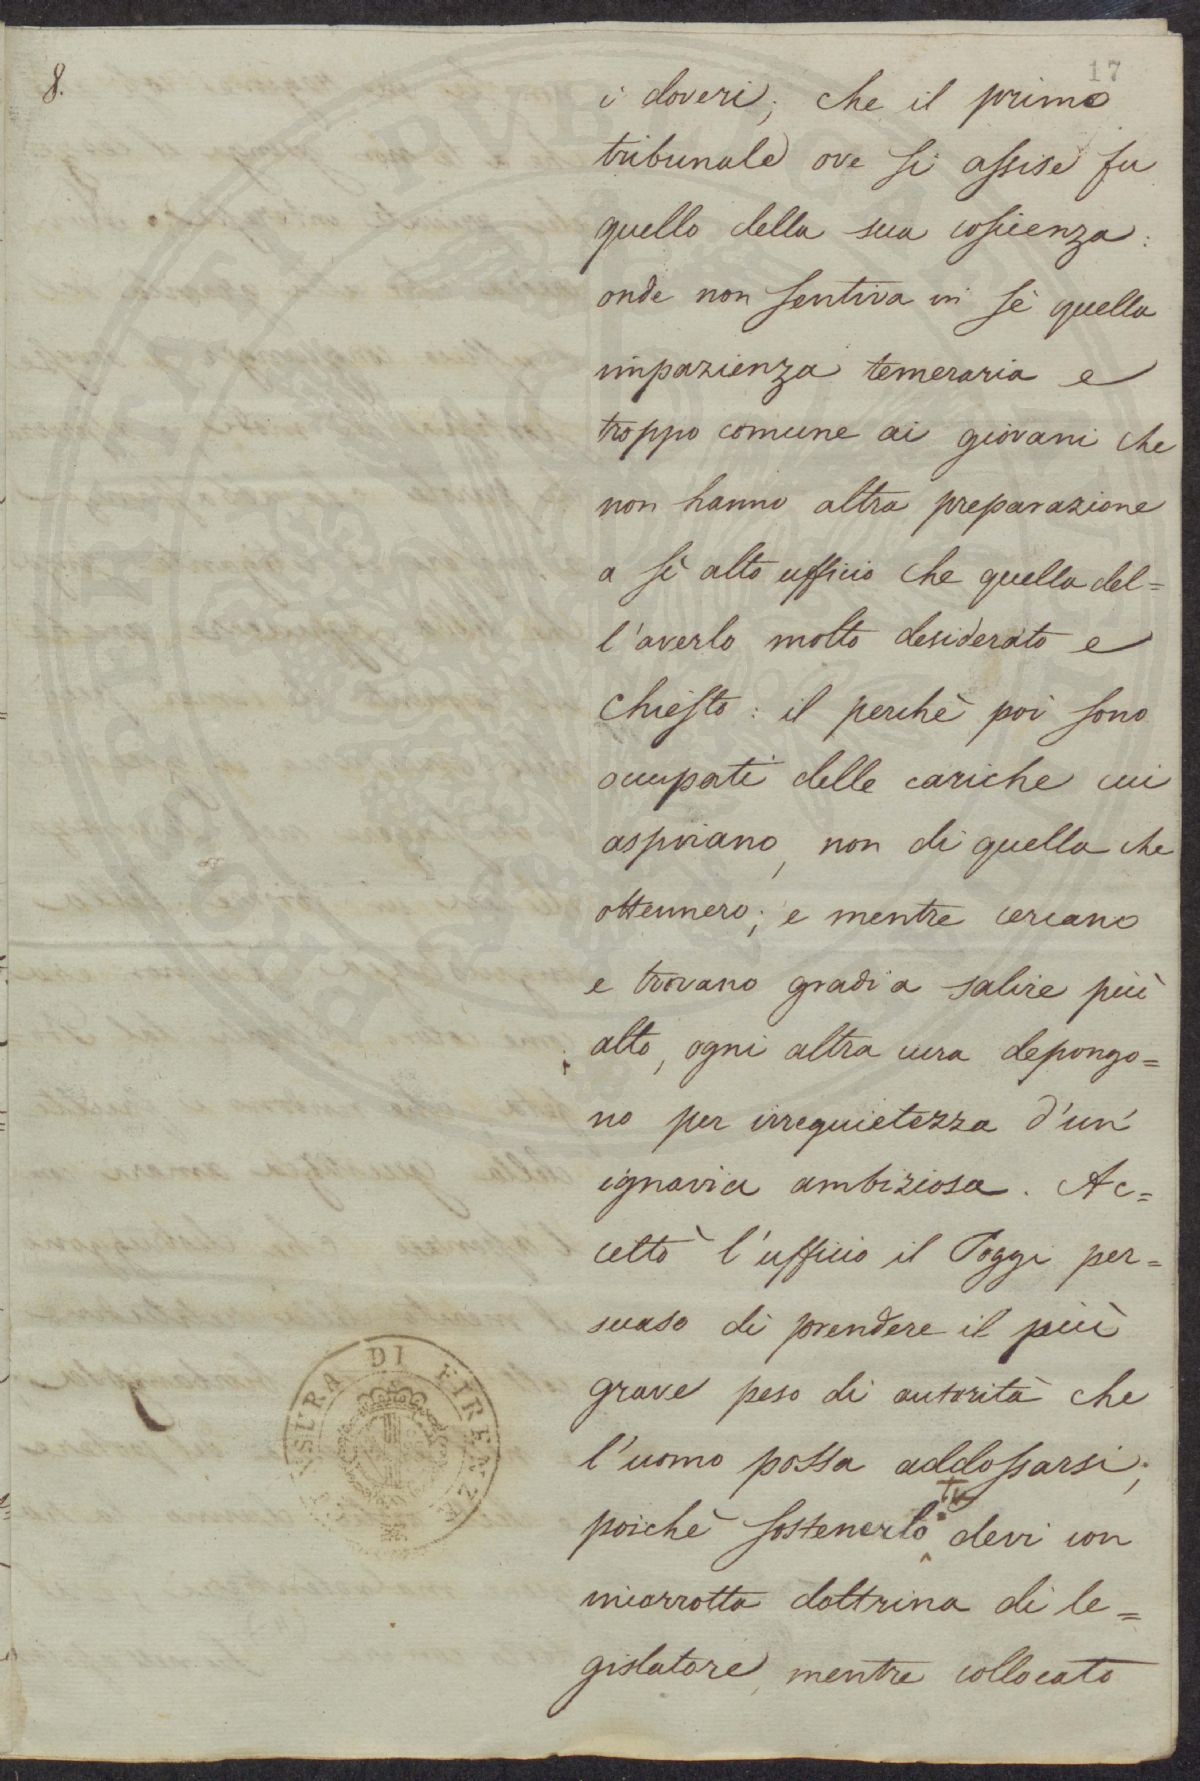 8.
17
i doveri; che il primo
tribunale ove si assise fu
quello della sua cosienza:
onde non sentiva in sè quella
impazienza temeraria e
troppo comune ai giovani che
non hanno altra preparazione
a sì alto ufficio che quella del=
l'averlo molto desiderato e
chiesto: il perchè poi sono
occupati delle cariche cui
aspirano, non di quella che
ottennero; e mentre cercano
e trovano gradi a salire più
alto, ogni altra cura depongo=
no per irrequietezza d'un'
ignavia ambiziosa. Ac=
cettò l'ufficio il Poggi per=
suaso di prendere il più
grave peso di autorità che
l'uomo possa addossarsi;
tu
poichè sostenerlo devi con
incorrotta dottrina di le=
gislatore, mentre collocato
SURA DI FIRENZE